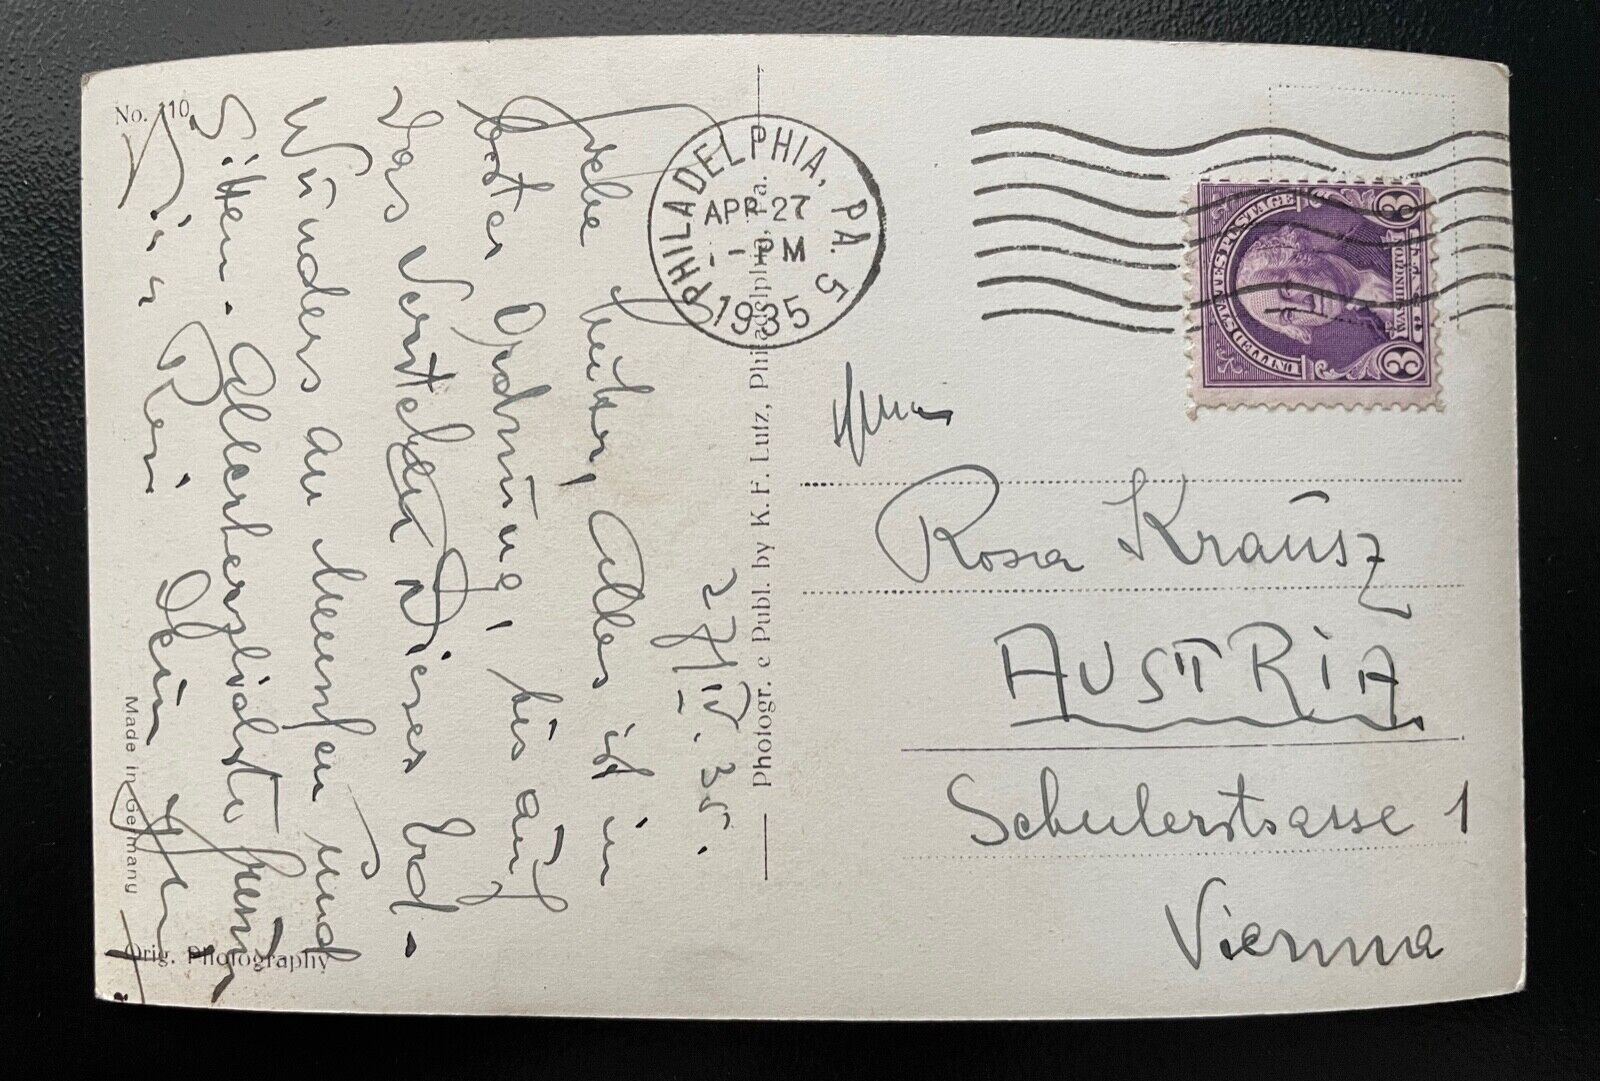 No. 110
27/IV. 35.
Liebe Mutter, Alles ist in
bester Ordnung, bis auf
das Verstehen Dieses Erd-
Wunders an Menschen und
Sitten. Allerherzlichste
Dein
Made in Germany
Orig. Photography
Photogr. e Publ. by K. F. Lutz, Philadelphia, Pa.
PHILADELPHIA, PA. 5
APR 27
PM
1935
UNITED STATES POSTAGE
WASHINGTON
3 3
Rosa Krausz
AUSTRIA
Schulerstrasse 1
Vienna